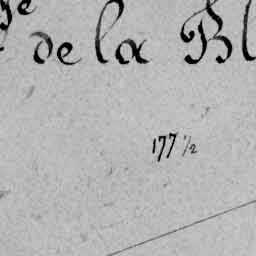 de la Bl
177 1/2